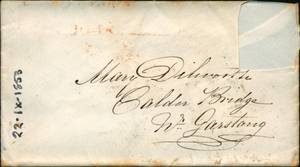 Mary Dilworth
Calder Bridge
Nr Garstang
22-IX-1853